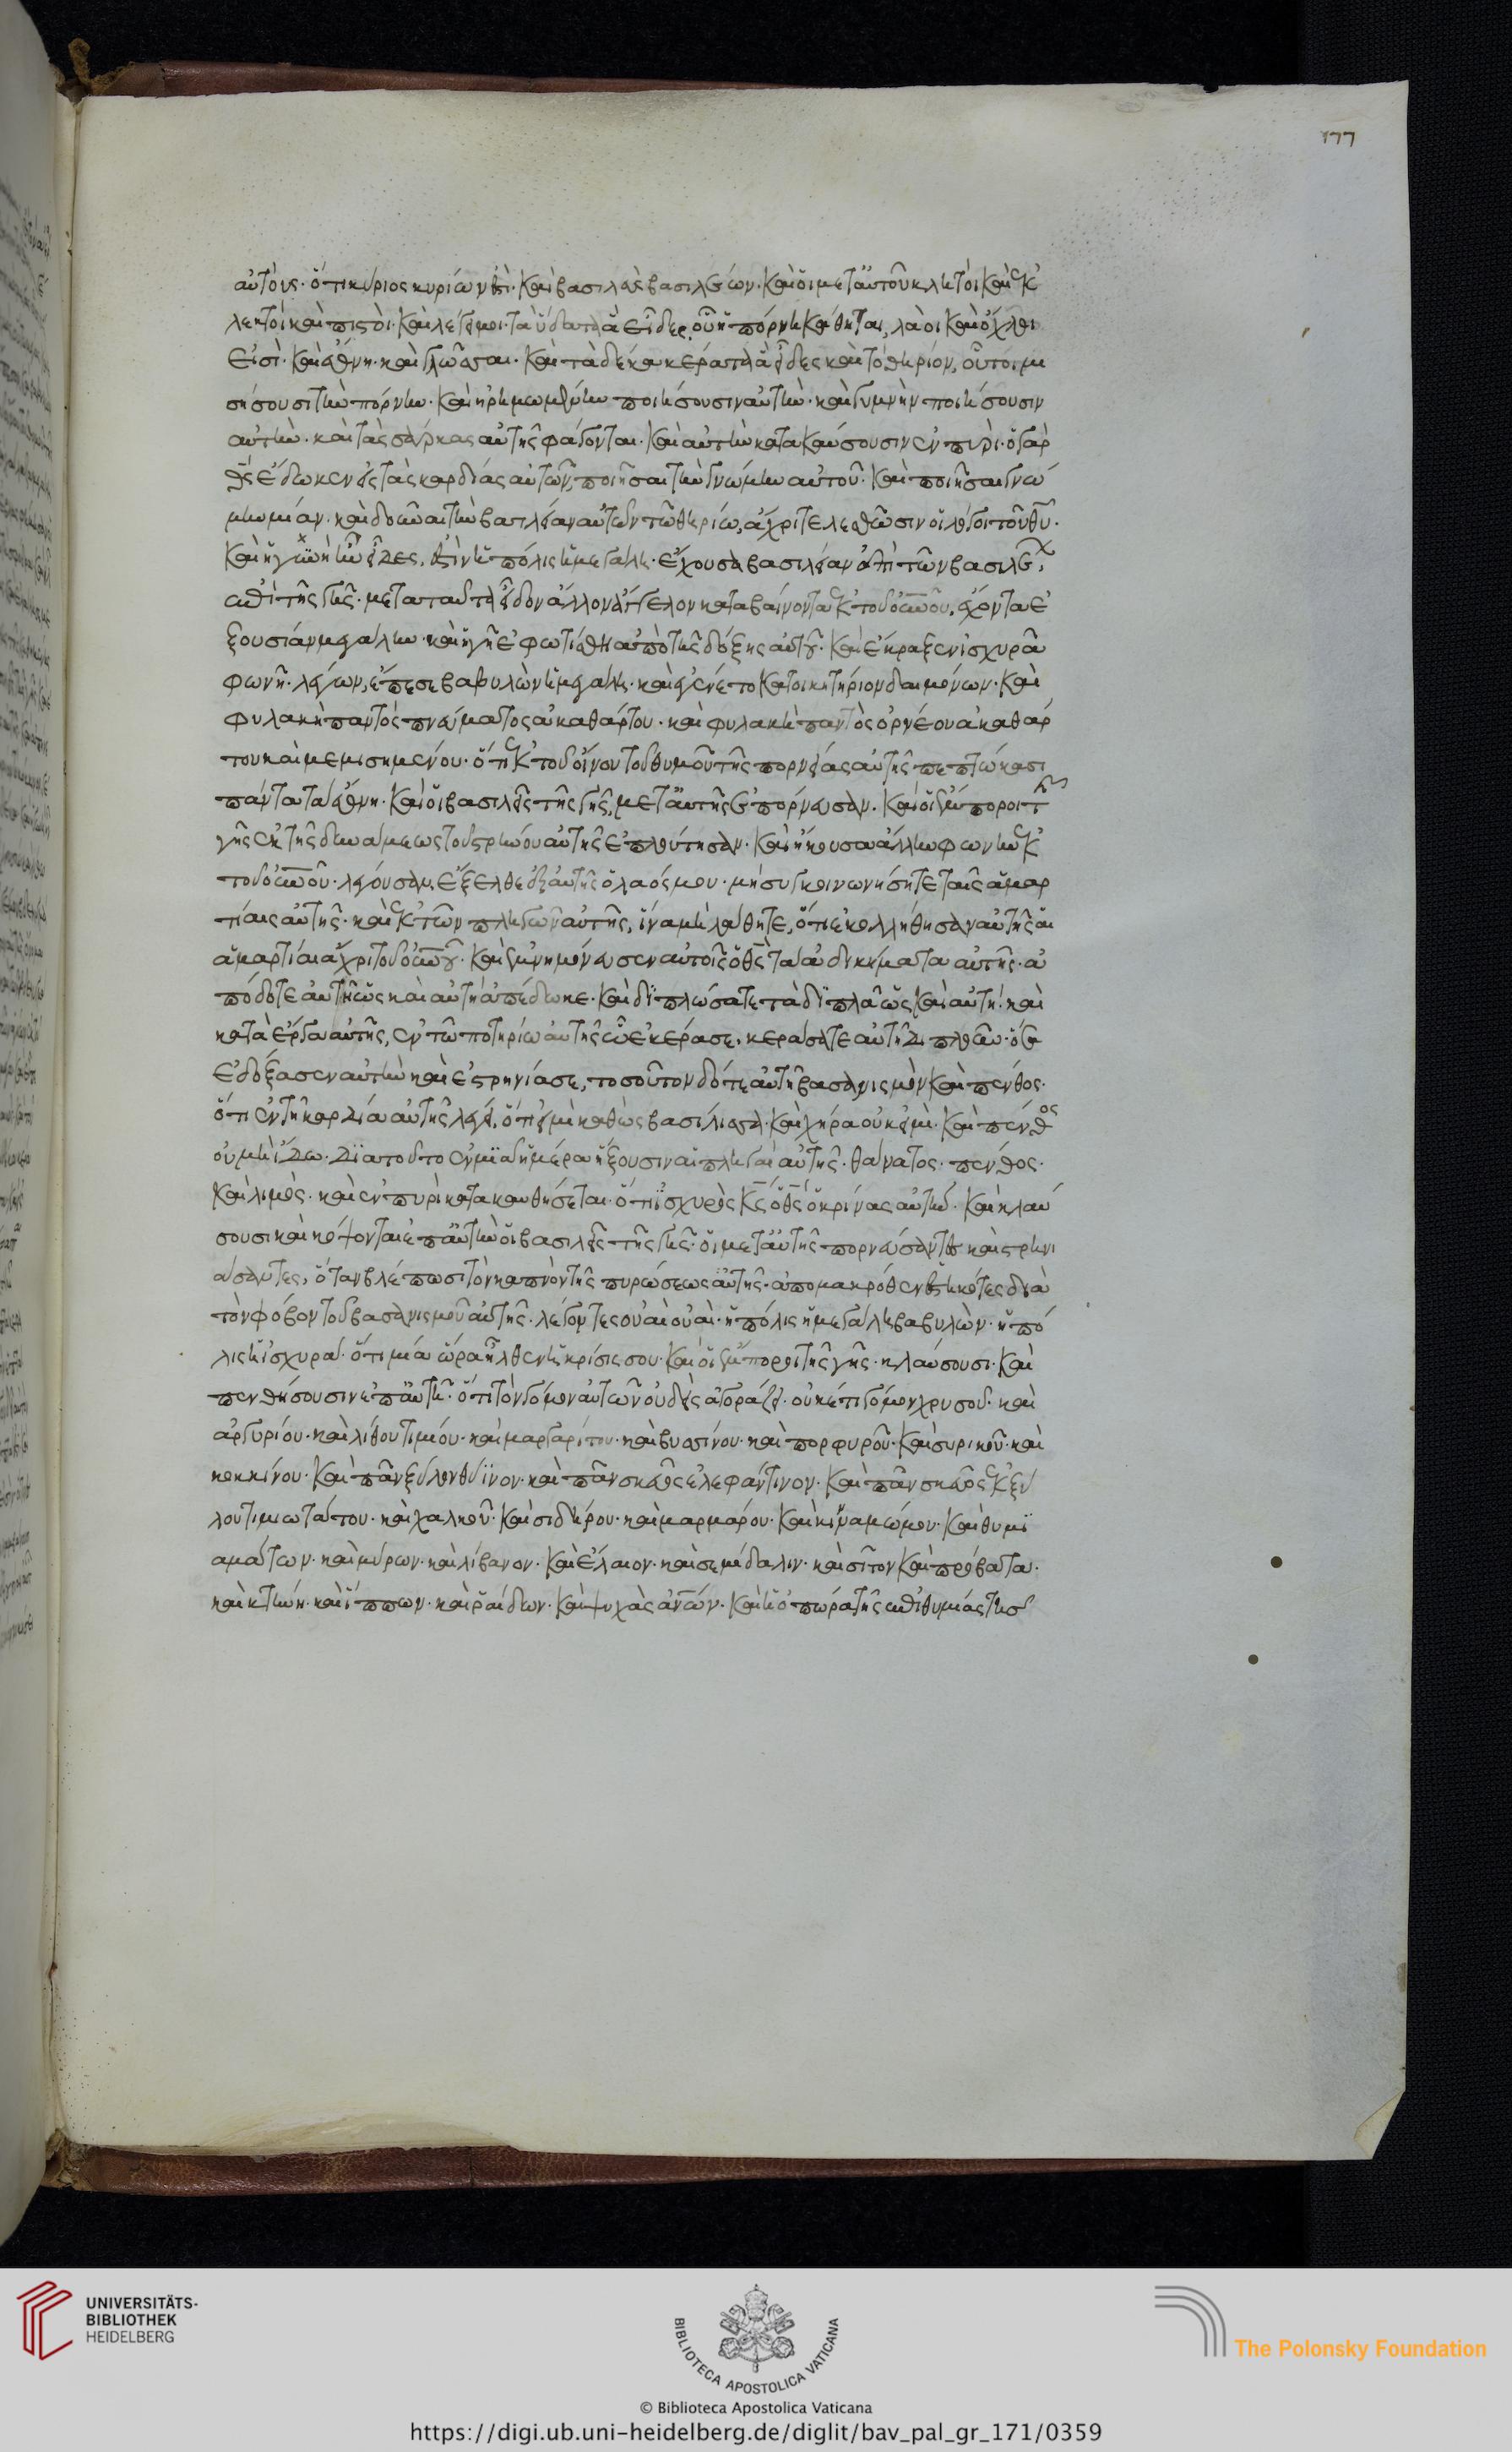 177
αὐτοὺς· ὅτι κύριος κυρίων ἐστὶ· καὶ βασιλεὺς βασιλέων· καὶ οἱ μετ αὐτοῦ κλητοὶ καὶ ἐκ
λεκτοὶ καὶ πιστοὶ· καὶ λέγει μοι· τὰ ὕδατα ἃ εἶδες, οὗ ἡ πόρνη κάθηται, λαοὶ καὶ ὄχλοι
εἰσὶ· καὶ ἔθνη· καὶ γλῶσσαι· καὶ τὰ δέκα κέρατα ἃ εἶδες καὶ τὸ θηρίον, οὗτοι μι
σήσουσι τὴν πόρνην· καὶ ἠρημωμένην ποιήσουσιν αὐτὴν· καὶ γυμνὴν ποιήσουσιν
αὐτὴν· καὶ τὰς σάρκας αὐτῆς φάγονται· καὶ αὐτὴν κατακαύσουσιν ἐν πυρὶ· ὁ γὰρ
θς ἔδωκεν εἰς τὰς καρδίας αὐτῶν, ποιῆσαι τὴν γνώμην αὐτοῦ· καὶ ποιῆσαι γνώ
μην μίαν· καὶ δοῦναι τὴν βασιλείαν αὐτῶν τῶ θηρίω, ἄχρι τελεσθῶσιν οἱ λόγοι τοῦ θυ·
καὶ ἡ γυνὴ ἣν εἶδες, ἐστὶν ἡ πόλις ἡ μεγάλη· ἔχουσα βασιλείαν ἐπὶ τῶν βασιλέων
ἐπὶ τῆς γῆς· μετα ταῦτα εἶδον ἄλλον ἄγγελον καταβαίνοντα ἐκ τοῦ οὐνοῦ, ἔχοντα ἐ
ξουσίαν μεγάλην· καὶ ἡ γῆ ἐφωτίσθη ἀπὸ τῆς δόξης αὐτοῦ· καὶ ἔκραξεν ἰσχυρᾶ
φωνῆ· λέγων, ἔπεσε βαβυλὼν ἡ μεγάλη· καὶ ἐγένετο κατοικητήριον δαιμόνων· καὶ
φυλακὴ παντὸς πνεύματος ἀκαθάρτου· καὶ φυλακὴ παντὸς ὀρνέου ἀκαθάρ
του καὶ μεμισημένου· ὅτι ἐκ τοῦ οἴνου τοῦ θυμοῦ τῆς πορνείας αὐτῆς πεπτώκασι
πάντα τὰ ἔθνη· καὶ οἱ βασιλεῖς τῆς γῆς, μετ αὐτῆς ἐπόρνευσαν· καὶ οἱ ἔμποροι τῆς
γῆς ἐκ τῆς δυνάμεως τοῦ στρήνου αὐτῆς ἐπλούτησαν· καὶ ἤκουσα ἄλλην φωνὴν ἐκ
τοῦ οὐνοῦ· λέγουσαν, ἔξελθε ἐξ αὐτῆς ὁ λαός μου· μὴ συγκοινωνήσητε ταῖς ἁμαρ
τίαις αὐτῆς· καὶ ἐκ τῶν πληγῶν αὐτῆς, ἵνα μὴ λάβητε, ὅτι ἐκολλήθησαν αὐτῆς αἱ
ἁμαρτίαι ἄχρι τοῦ οὐνοῦ· καὶ ἐμνημόνευσεν αὐτοῖς ὁ θς τὰ ἀδικήματα αὐτῆς· ἀ
πόδοτε αὐτῆ ὡς καὶ αὐτὴ ἀπέδωκε· καὶ διπλώσατε τὰ διπλᾶ ὡς καὶ αὐτὴ· καὶ
κατὰ ἔργα αὐτῆς, ἐν τῶ ποτηρίω αὐτῆς ὧ ἐκέρασε, κεράσατε αὐτῆ διπλοῦν· ὅσα
ἐδόξασεν αὐτὴν καὶ ἐστρηνίασε, τοσοῦτον δότε αὐτῆ βασανισμὸν καὶ πένθος·
ὅτι ἐν τῆ καρδία αὐτῆς λέγει, ὅτι εἰμὶ καθὼς βασίλισσα· καὶ χήρα οὐκ εἰμὶ· καὶ πένθος
οὐ μὴ ἴδω· δϊατοῦτο ἐν μϊᾶ ἡμέρα ἥξουσιν αἱ πληγαὶ αὐτῆς· θάνατος· πένθος·
καὶ λιμὸς· καὶ ἐν πυρὶ κατακαυθήσεται· ὅτι ἰσχυρὸς κς ὁ θς ὁ κρίνας αὐτὴν· καὶ κλαύ
σουσι καὶ κόψονται ἐπ αὐτὴν οἱ βασιλεῖς τῆς γῆς· οἱ μετ αὐτῆς πορνεύσαντες καὶ στρηνι
άσαντες, ὅταν βλέπωσι τὸν καπνὸν τῆς πυρώσεως αὐτῆς· ἀπομακρόθεν ἑστηκότες διὰ
τὸν φόβον τοῦ βασανισμοῦ αὐτῆς· λέγοντες οὐαὶ οὐαὶ· ἡ πόλις ἡ μεγάλη βαβυλὼν· ἡ πό
λις ἡ ἰσχυρά· ὅτι μιᾶ ὥρα ἦλθεν ἡ κρίσις σου· καὶ οἱ ἔμποροι τῆς γῆς· κλαύσουσι· καὶ
πενθήσουσιν ἐπ αὐτῆ· ὅτι τὸν γόμον αὐτῶν οὐδεὶς ἀγοράζει· οὐκέτι γόμον χρυσοῦ· καὶ
ἀργυρίου· καὶ λίθου τιμίου· καὶ μαργαρίτου· καὶ βυσσίνου· καὶ πορφυροῦ· καὶ συρικοῦ· καὶ
κοκκίνου· καὶ πᾶν ξύλον θύϊνον· καὶ πᾶν σκεῦος ἐλεφάντινον· καὶ πᾶν σκεῦος ἐκ ξύ
λου τιμιωτάτου· καὶ χαλκοῦ· καὶ σιδήρου· καὶ μαρμάρου· καὶ κινάμωμον· καὶ θυμϊ
αμάτων· καὶ μύρων· καὶ λίβανον· καὶ ἔλαιον· καὶ σεμίδαλιν· καὶ σῖτον καὶ πρόβατα·
καὶ κτήνη· καὶ ἵππων· καὶ ῥαιδων· καὶ ψυχὰς ἀνων· καὶ ἡ ὀπώρα τῆς ἐπιθυμίας τῆσ
UNIVERSITÄTS-
BIBLIOTHEK
HEIDELBERG
BIBLIOTECA APOSTOLICA VATICANA
The Polonsky Foundation
© Biblioteca Apostolica Vaticana
https://digi.ub.uni-heidelberg.de/diglit/bav_pal_gr_171/0359